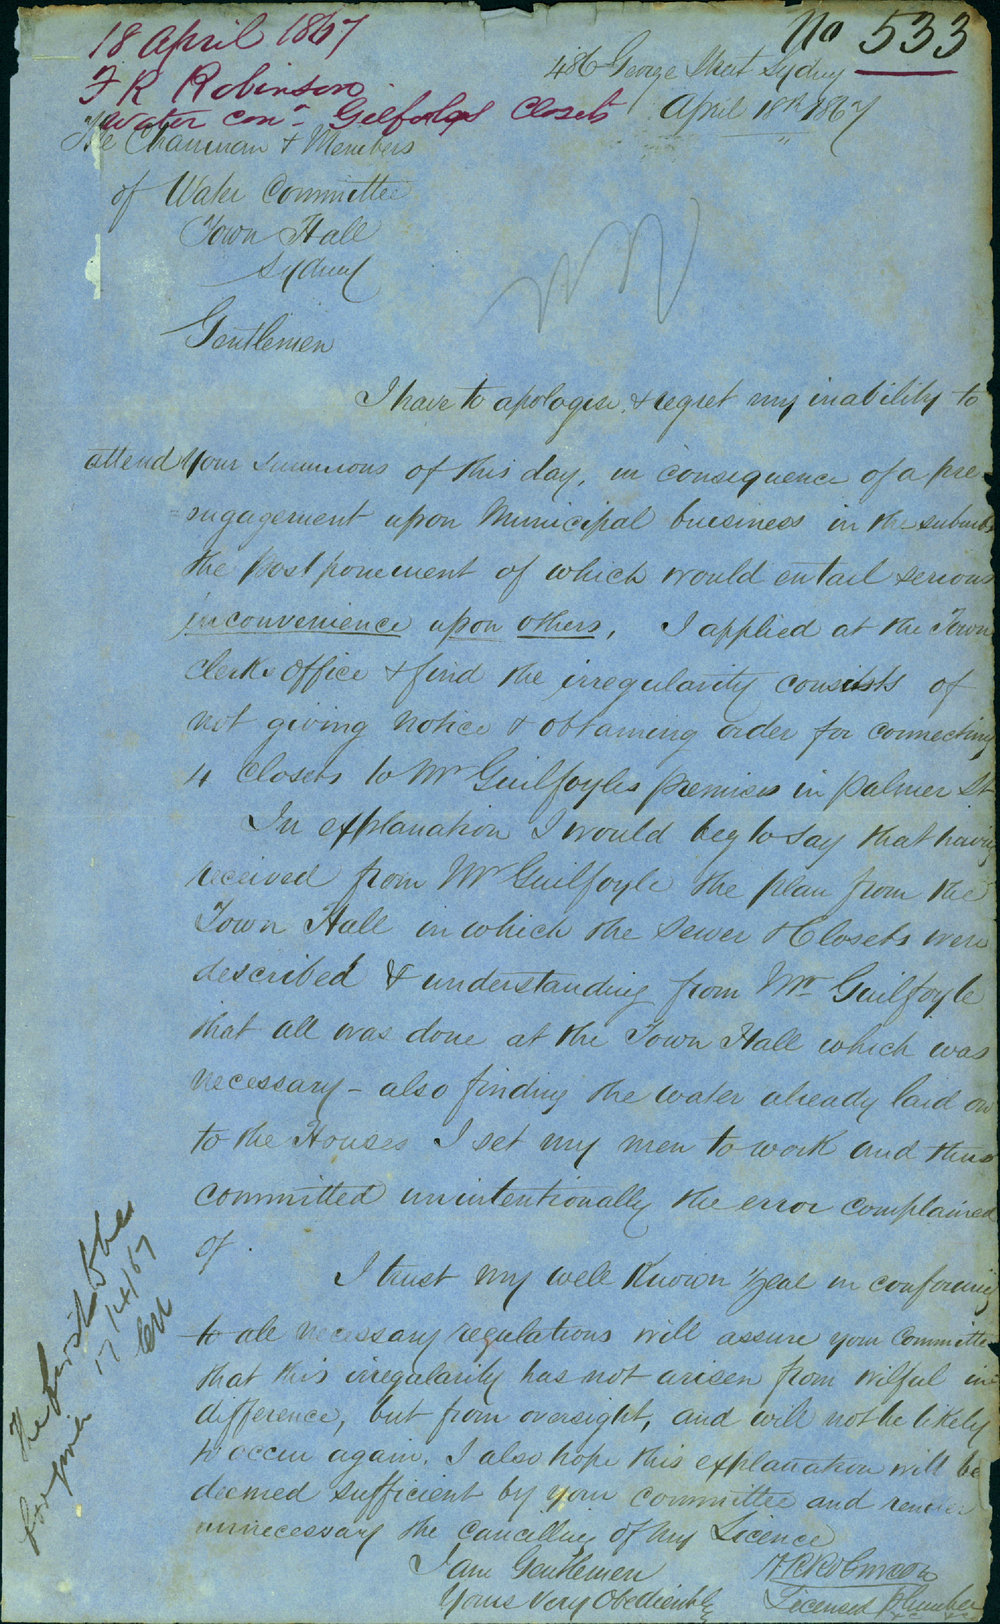 No 533
18 April 1867
F R Robinson
Water con - Gilfoyles Closets
486 George Street Sydney
April 18th 1867
The Chairman & Members
of Water Committee
Town Hall
Sydney
Gentlemen
I have to apologise & regret my inability to
attend your summons of this day, in consequence of a pre-
engagement upon Municipal business in the suburbs
the postponement of which would entail serious
inconvenience upon others. I applied at the Town
Clerks Office & find the irregularity consists of
not giving notice & obtaining order for connecting
4 Closets to Mr Guilfoyles premises in Palmer St
In explanation I would beg to say that having
received from Mr Guilfoyle the plan from the
Town Hall in which the Sewer & Closets were
described & understanding from Mr Guilfoyle
that all was done at the Town Hall which was
necessary - also finding the water already laid on
to the Houses I set my men to work and thus
committed unintentionally the error complained
of.
I trust my well known zeal in conforming
to all necessary regulations will assure your Committee
that this irregularity has not arisen from wilful in-
difference, but from oversight, and will not be likely
to occur again. I also hope this explanation will be
deemed sufficient by your committee and render
unnecessary the cancelling of my Licence
I am Gentlemen
Yours Very Obediently
F R Robinson
Licensed Plumber
The
17/4/67